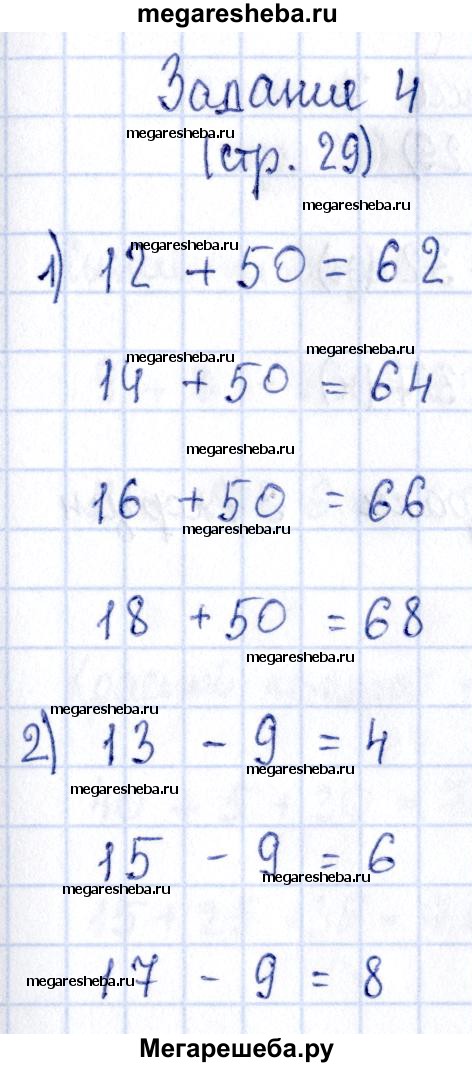 megaresheba.ru
megaresheba.ru
Задание 4
megaresheba.ru
(стр. 29)
megaresheba.ru
megaresheba.ru
1) 12 + 50 = 62
megaresheba.ru
megaresheba.ru
14 + 50 = 64
megaresheba.ru
16 + 50 = 66
megaresheba.ru
18 + 50 = 68
megaresheba.ru
megaresheba.ru
2) 13 - 9 = 4
megaresheba.ru
15 - 9 = 6
megaresheba.ru
megaresheba.ru
17 - 9 = 8
megaresheba.ru
megaresheba.ru
Мегарешеба.ру